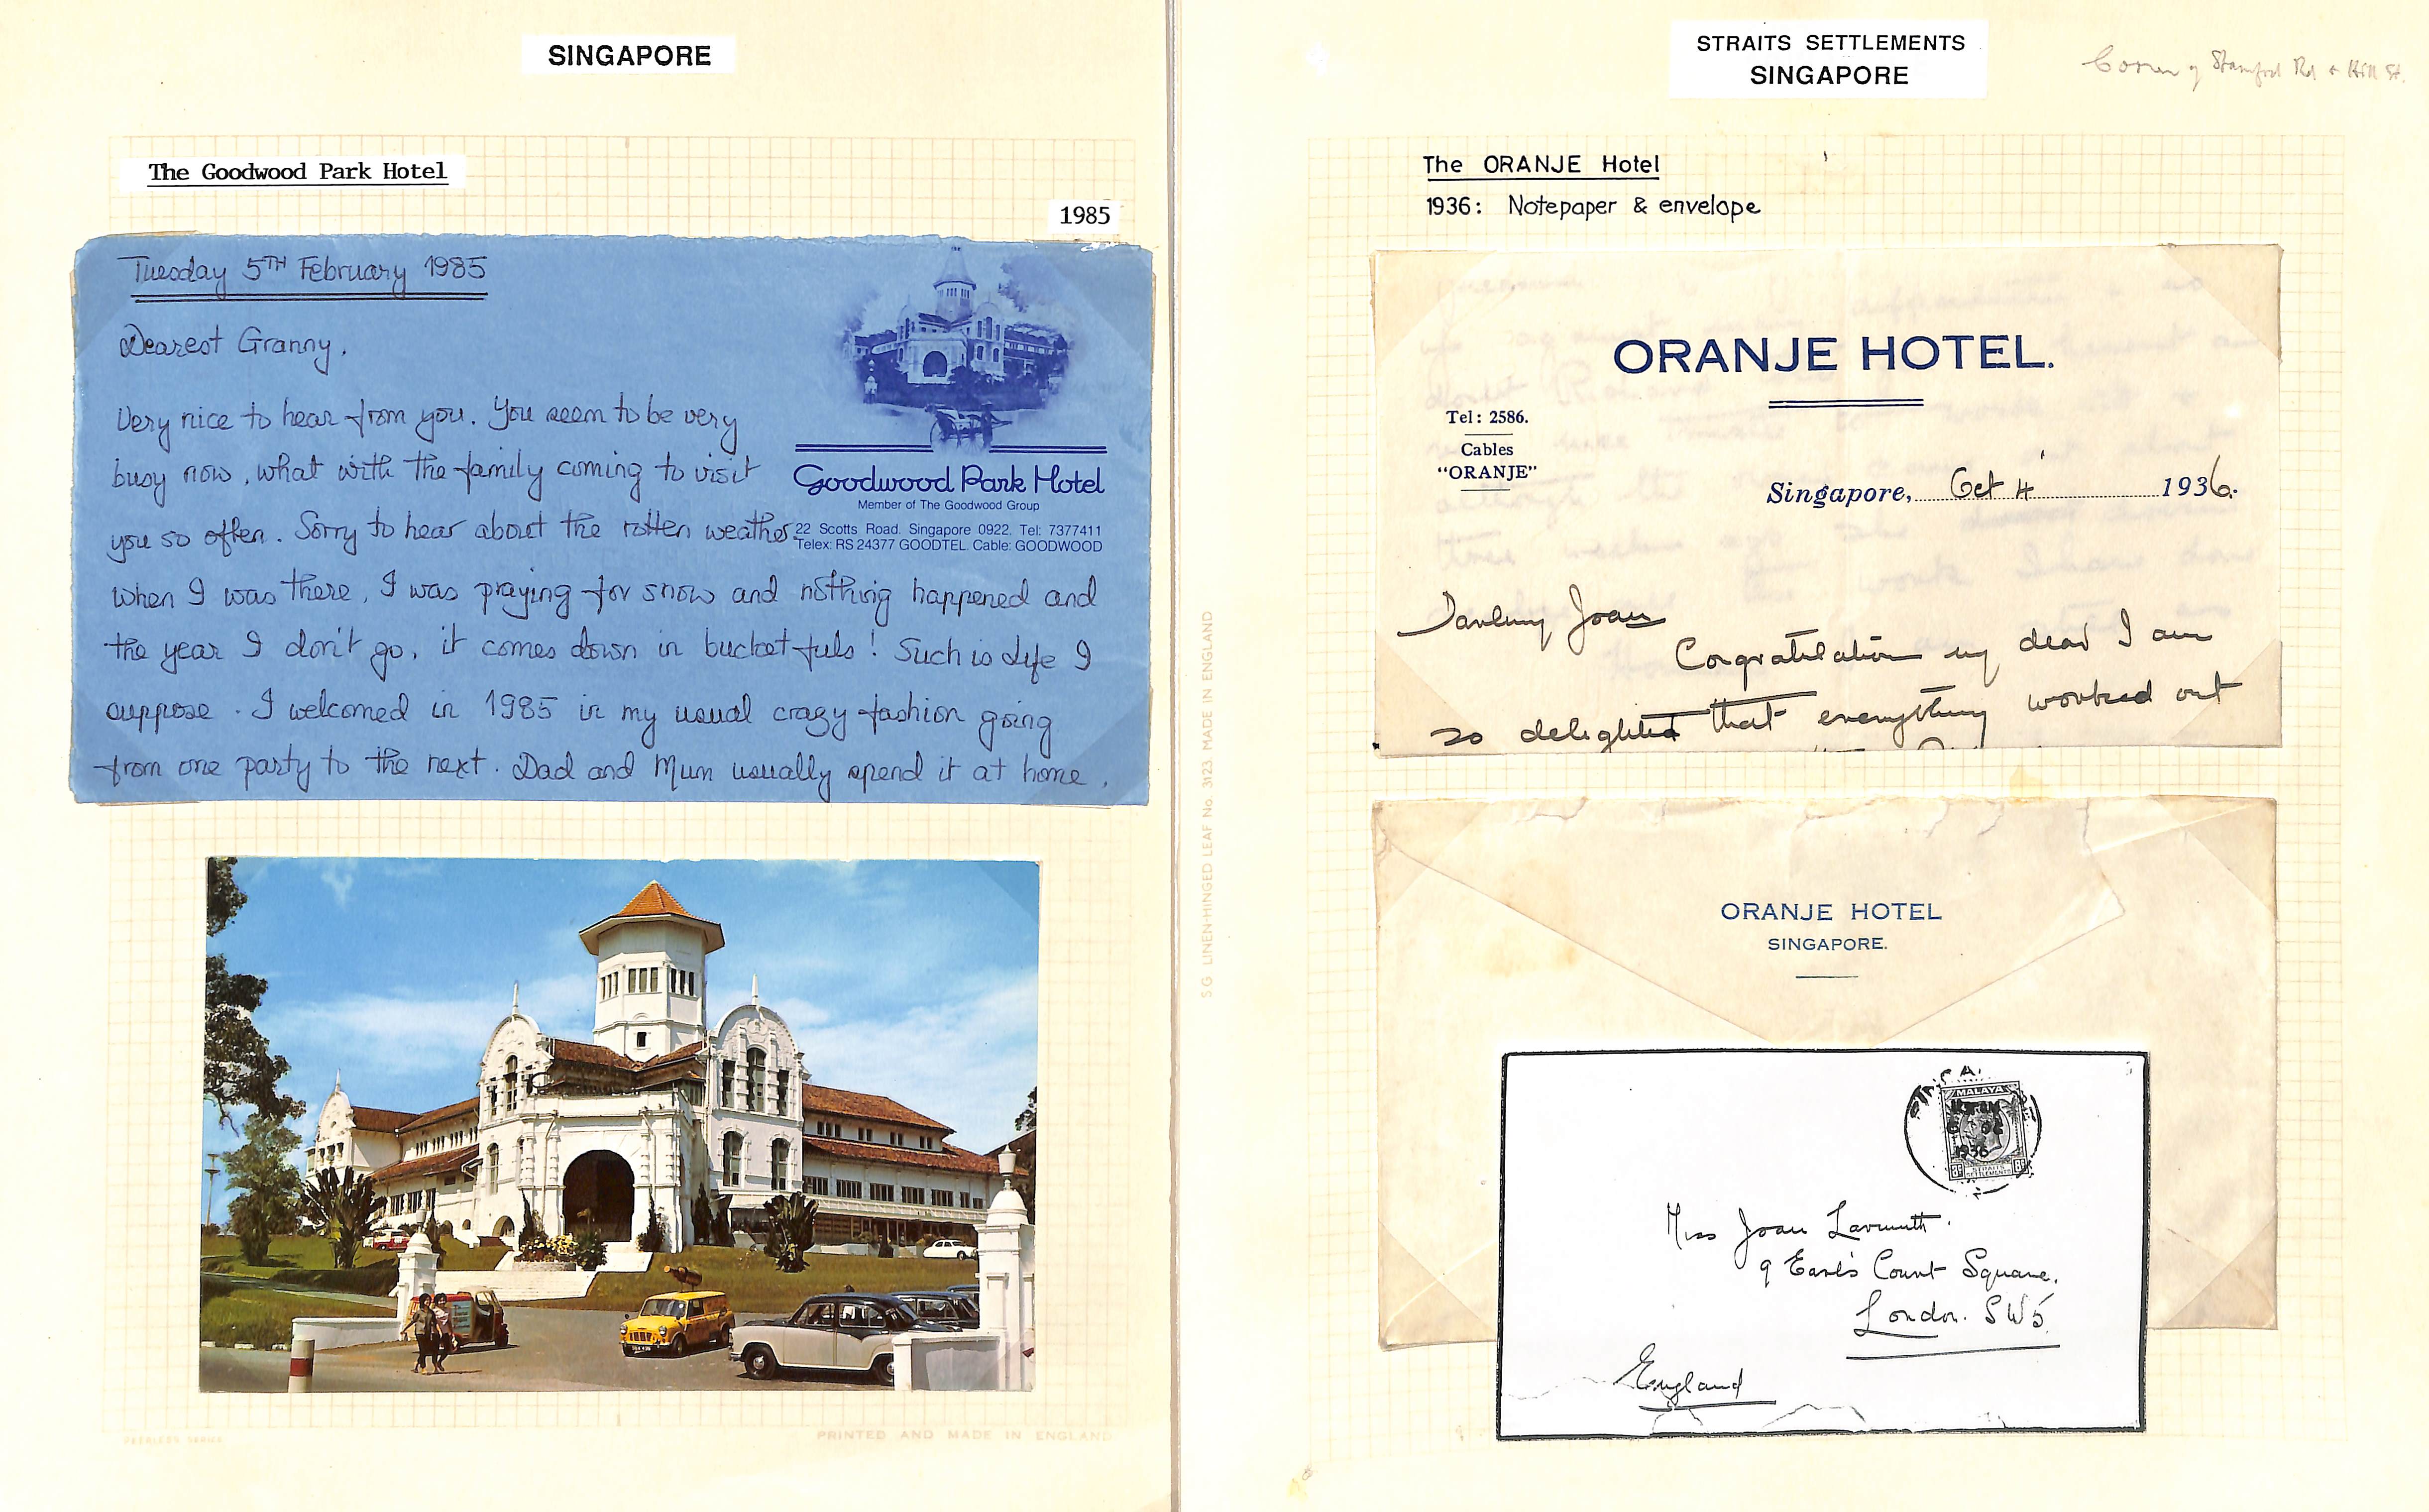 SINGAPORE
The Goodwood Park Hotel
1985
Tuesday 5TH February 1985
Dearest Granny,
Very nice to hear from you. You seem to be very
busy now, what with the family coming to visit
you so often. Sorry to hear about the rotten weather.
when I was there, I was praying for snow and nothing happened and
the year I don't go, it comes down in bucket fuls! Such is life I
suppose. I welcomed in 1985 in my usual crazy fashion going
from one party to the next. Dad and Mum usually spend it at home.
Goodwood Park Hotel
Member of The Goodwood Group
22 Scotts Road. Singapore 0922. Tel: 7377411
Telex: RS 24377 GOODTEL. Cable: GOODWOOD
PEERLESS SERIES
PRINTED AND MADE IN ENGLAND
STRAITS SETTLEMENTS
SINGAPORE
Corner of Stamford Rd & Hill St.
The ORANJE Hotel
1936: Notepaper & envelope
ORANJE HOTEL.
Tel: 2586.
Cables
"ORANJE"
Singapore, Oct 4 1936.
Darling Joan
Congratulation my dear I am
so delighted that everything worked out
S.G LINEN-HINGED LEAF No. 3123 MADE IN ENGLAND
ORANJE HOTEL
SINGAPORE.
MALAYA
1936
STRAITS
SETTLEMENTS
Miss Joan
9 Earl's Court Square,
London. SW5
England